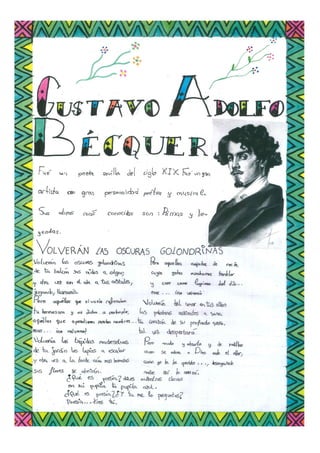 GUSTAVO ADOLFO
BÉCQUER
Fue un poeta sevilla del siglo XIX Fue un gran
artista con gran personalidad poética y musical.
Sus obras más conocidas son: Rimas y le-
yendas.
VOLVERÁN LAS OSCURAS GOLONDRINAS
Volverán las oscuras golondrinas
de tu balcón sus nidos a colgar,
y otra vez con el ala a tus cristales,
jugando, llamarán.
Pero aquellas que el vuelo refrenaban
tu hermosura y mi dicha a contemplar,
aquellas que aprendieron nuestros nombres...
esas... ¡no volverán!
Volverán las tupidas madreselvas
de tu jardín las tapias a escalar
y otra vez a la tarde aún más hermosas
sus flores se abrirán.
Pero aquellas cuajadas de rocío
cuyas gotas mirábamos temblar
y caer como lágrimas del día...
esas... ¡no volverán!
Volverán del amor en tus oídos
las palabras ardientes a sonar,
tu corazón de su profundo sueño
tal vez despertará.
Pero mudo y absorto y de rodillas
como se adora a Dios ante el altar,
como yo te he querido..., desengáñate
nadie así te amará.
¿Qué es poesía? dices mientras clavas
en mi pupila tu pupila azul.
¿Qué es poesía? ¿Y tú me lo preguntas?
Poesía... Eres tú.